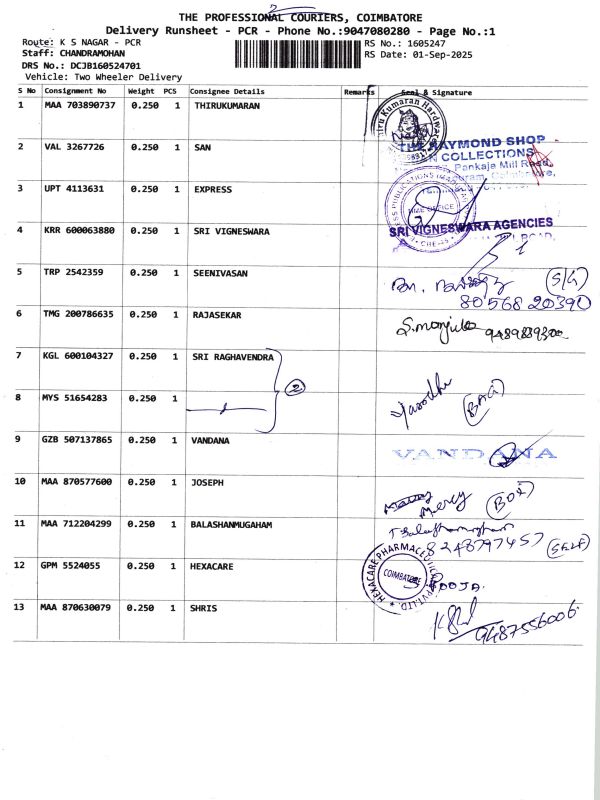 2
THE PROFESSIONAL COURIERS, COIMBATORE
Delivery Runsheet - PCR - Phone No.:9047080280 - Page No.:1
Route: K S NAGAR - PCR
RS No.: 1605247
Staff: CHANDRAMOHAN
RS Date: 01-Sep-2025
DRS No.: DCJB160524701
Vehicle: Two Wheeler Delivery
S No Consignment No Weight PCS Consignee Details Remarks Seal & Signature
1 MAA 703890737 0.250 1 THIRUKUMARAN
Kumaran Hardware
2 VAL 3267726 0.250 1 SAN
THE RAYMOND SHOP
COLLECTIONS
Pankaja Mill Road,
Coimbatore,
3 UPT 4113631 0.250 1 EXPRESS
4 KRR 600063880 0.250 1 SRI VIGNESWARA
SRI VIGNESWARA AGENCIES
5 TRP 2542359 0.250 1 SEENIVASAN
(S/G)
80568 20390
6 TMG 200786635 0.250 1 RAJASEKAR
S. manjula
7 KGL 600104327 0.250 1 SRI RAGHAVENDRA
2
8 MYS 51654283 0.250 1
Jasodha
9 GZB 507137865 0.250 1 VANDANA
VANDANA
10 MAA 870577600 0.250 1 JOSEPH
Mercy
11 MAA 712204299 0.250 1 BALASHANMUGAHAM
T Balashanmugham
8248797457 (SELF)
12 GPM 5524055 0.250 1 HEXACARE
HEXACARE PHARMACEUTICALS PVT LTD.
COIMBATORE
POOJA.
13 MAA 870630079 0.250 1 SHRIS
9487556006